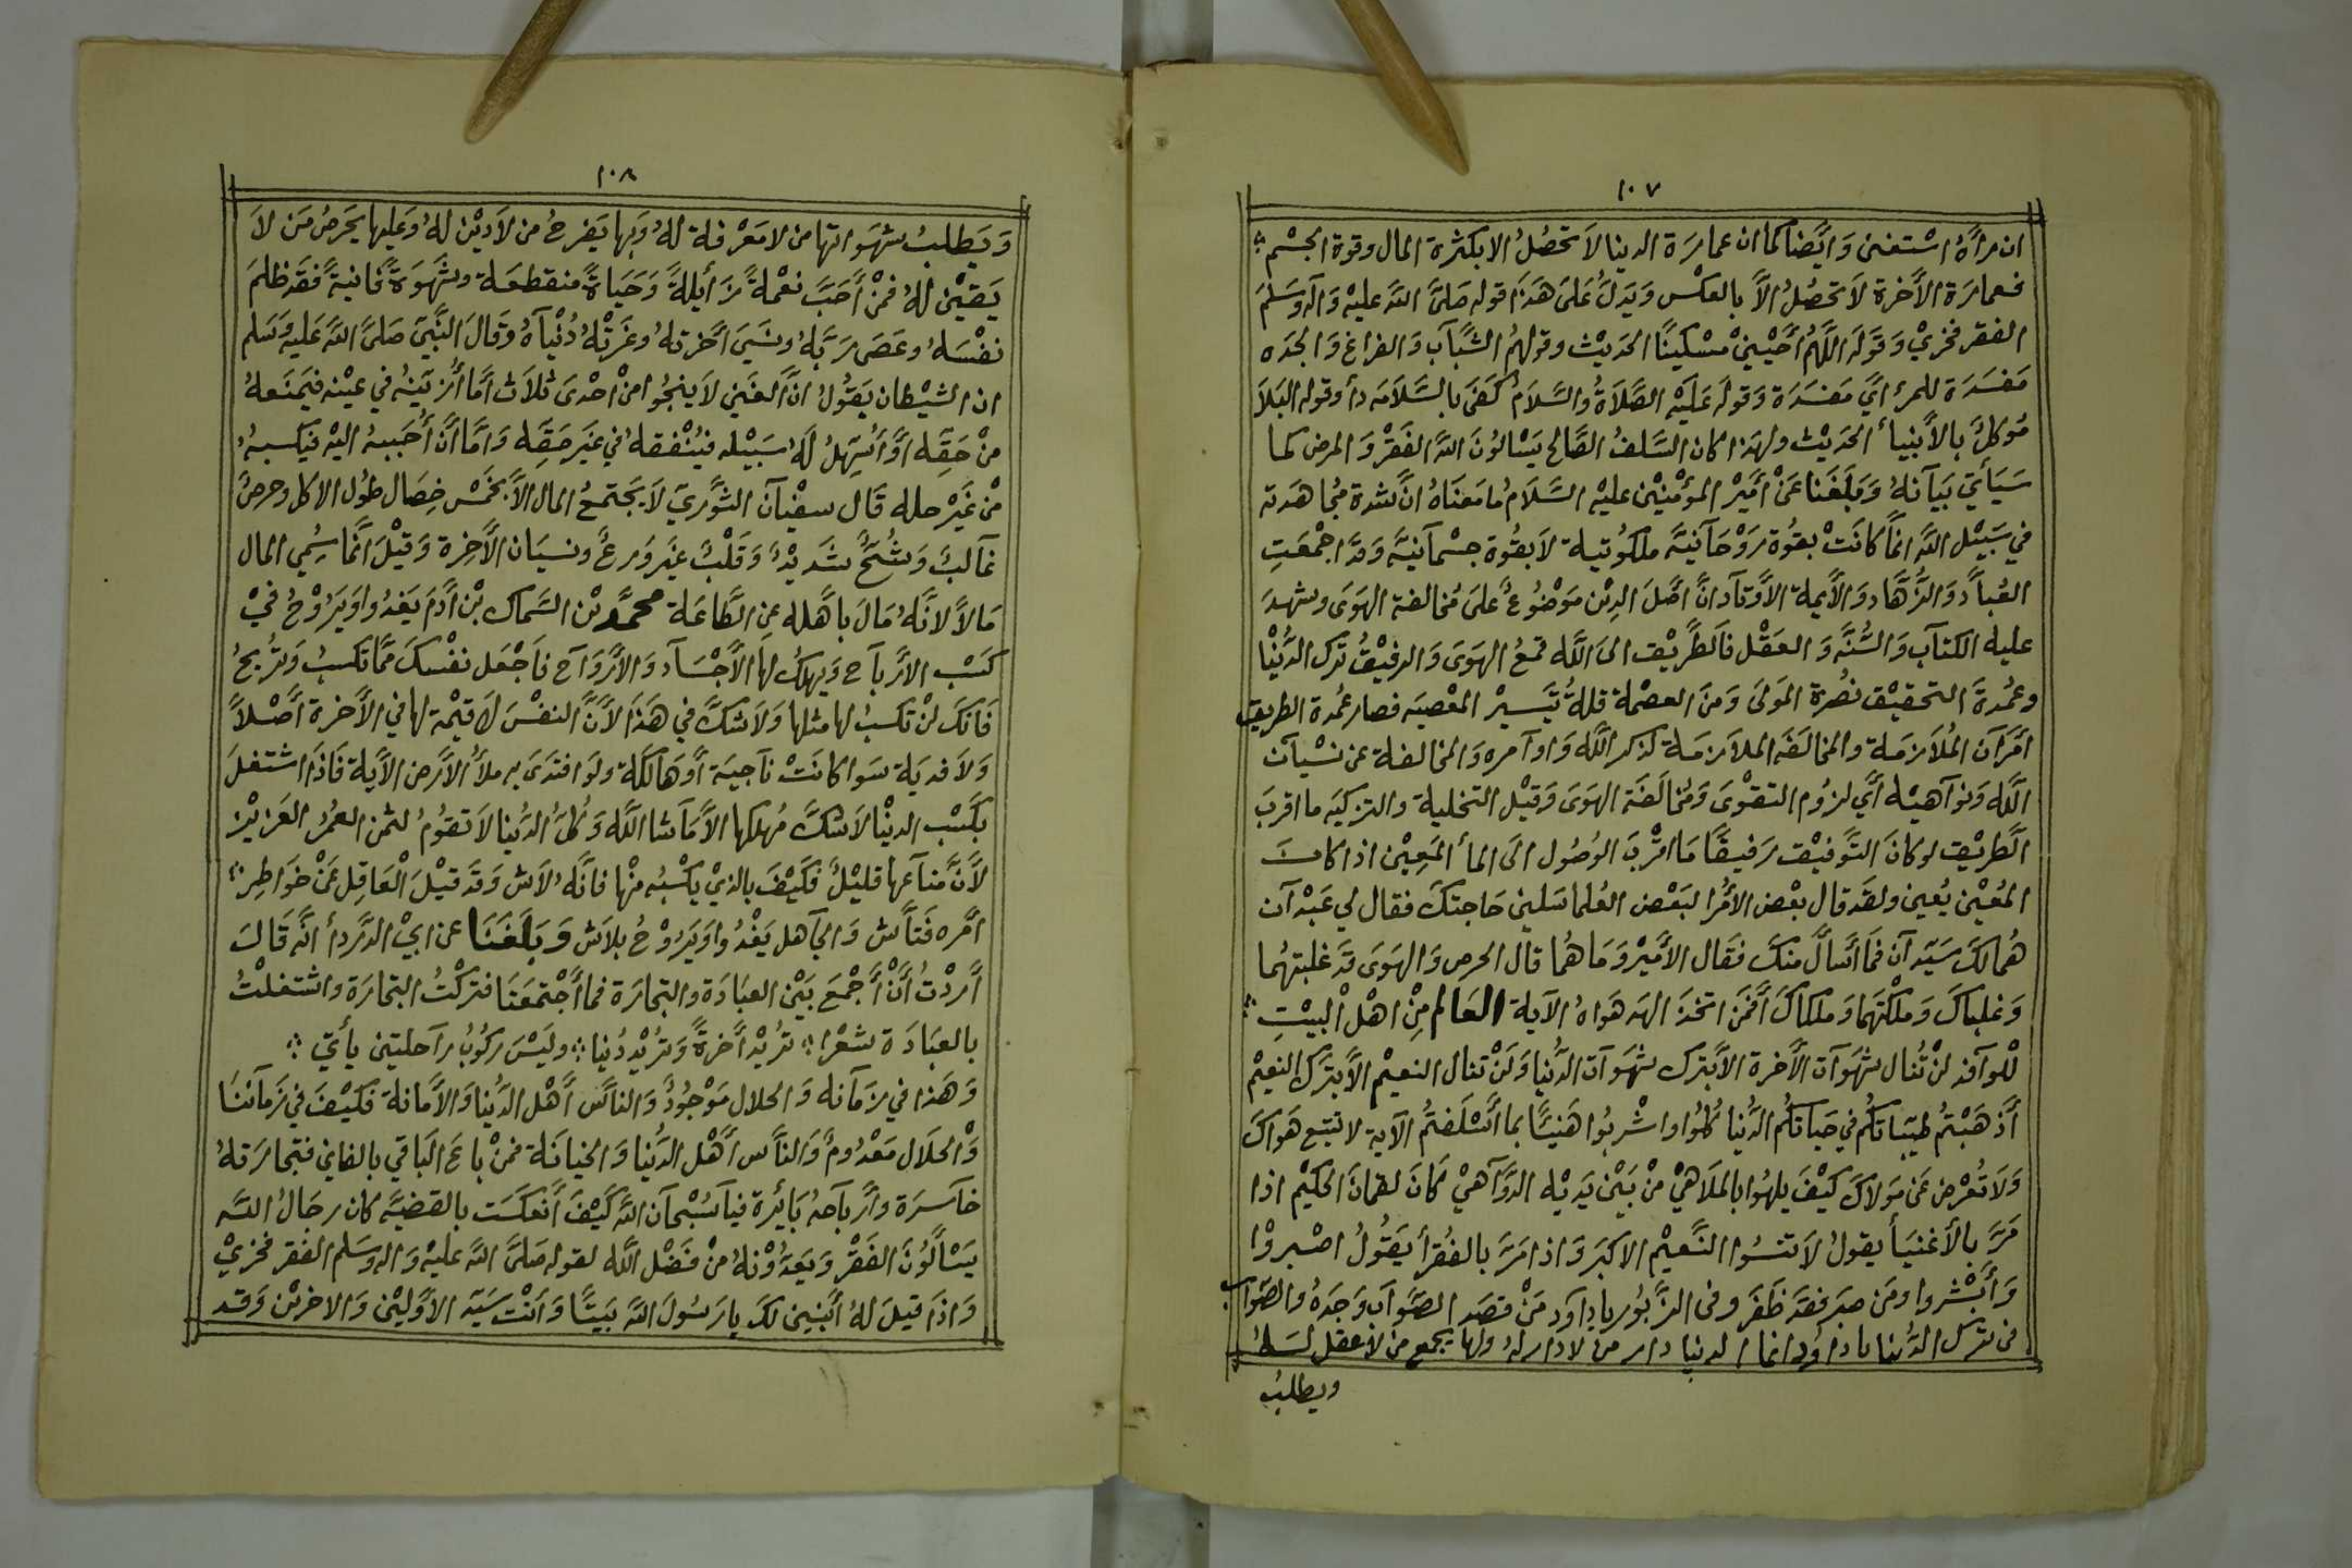 ١٠٧
ان رأهُ اسْتغنىٰ وَايَضا كما ان عمارَة الدينا لاَ تحصُلُ الا بكثرة المال وقوة الجسْم
فعمارَة الأخرة لاَ تحصُلُ الاَّ بالعكس وَيَدلُّ عَلىَ هَذَا قوله صَلىَّ اللَّه عليْه وَآله وَسَلمَ
الفقر فخريْ وَقوَله اللَّهُم أَحْيِنيْ مسْكينًا الحَديْث وقولهُم الشَّبَآب وَالفراغ وَالجدَه
مَفسَدَة للمرء ايَّ مَفسَدَة وَقوله عَليَه الصَّلاَةُ وَالسَّلاَمُ كَفىَ بالسَّلاَمَه دأ وقوله البَلاَ
مُوكلٌ بالأَنبيأ الحَديْث ولهَذا كان السَّلفُ الصَّالح يَسْالوُنَ اللَّه الفَقرْ وَالمرض كما
سَيَأتي بَيَآنهُ وَبَلَغَنا عَنْ أمَيْر المؤمْنيْن عليْه السَّلاَمُ ما مَعنَاهُ انَّ شدة مجُاهَدته
في سَبيْل اللَّه انمَّا كانَتْ بقوُة رَوْحَآنيَّه ملكوُتية لاَ بقوُة جسْمآنيَّه وَقدَّ اجْمعَتِ
العُبأَّد وَالزُّهَّاد وَالأَيمة الأَوتآد انَّ اصْلَ الدِيْن مَوْضُوعٌ علىَ مُخالفة الهَوَى وشهدَ
عليه الكتآب وَالسُّنَّه وَالعَقْل فاَلطَّريْق الىَ اللَّه قمعُ الهَوَى وَالرفيْقُ ترك الدُّنْيا
وعُمدةَ التحقيْق نصُرة المَولىَ وَمنَ العصْمة قلةُ تيَسيرْ المعْصيَه فصار عُمدة الطريق
امَرَآن المُلاَزمَة والمخالَفَه الملاَزمَة لذكر اللَّه وَاوآمره وَالمخالفة عن نسْيآن
اللَّه وَنوآهيْه أَي لزوُم التقوْىَ وَمُخالَفَة الهَوَى وَقيْل التخلية والتزكيَه ما اقربَ
الطَّريْق لو كانَ التَّوفيْق رَفيقًا مَا اقْربَ الوُصُول الىَ المأ المَعِيْن اذا كانَ
المعُيْن يعُين ولقَد قال بعْض الأمُرا لبَعْض العُلما سَلْني حَاجتكَ فقال لي عَبْدآن
هُمالكَ سَيَّدآن فمَا أسَالُ منكَ فقَال الأمَيْر وَمَا هُما قال الحرص وَالهَوَى قدَ غلبتهُما
وَغلبَاكَ وَملكْتَهمَا وَملكاكَ أَفمَن اتخذَ الهه هَواهُ الآية العَالم مِنْ اهْل البيْتِ
للْوآفد لنْ تُنال شهَوَآت الأخرة الأَّ بترك شهَوآت الدُّنيا وَلَنْ تنال النعيم الأَّ بترَك النعيْم
أذَهَبْتمُ طَيبَاتكُم في حَياتكُم الدُّنيا كلُوُا واشْربُوا هَنيئًا بما أَسْلَفتمُ الآية لا تتبع هَواكَ
وَلاَ تعُرْض عَن مَولاكَ كيْفَ يلهُوا بالملاَهيْ منْ بَيْن يَديْه الدَّوآهيْ كَانَ لقمانَ الحَكيْم اذا
مَرَّ بالأغنيَأ يقولُ لاَ تنسُوا النَّعيْم الاكبَر وَاذا مَرَّ بالفُقرأ يَقوُلُ اصْبروْا
وَأَبْشروا ومَن صبَر فقدَ ظَفَرَ وفى الزَّبوُر يا دِاوَد مَنْ قصَد الصَّوآب وَجَدَهُ والصَّوآب
في ترك الدُّنيا يا داوُد انما الدنيا دار من لا دار لهُ ولها يجمع من لاعقل لهُ
ويطلبُ
١٠٨
وَيَطلبُ شهَوَاتها من لا مَعْرفة لهُ وَبهَا يَفرحُ من لاَ ديْن لهُ وَعَليها يَحَرصُ مَن لاَ
يَقيْن لهُ فمَنْ أَحَبَّ نعْمةً زَأيلةً وَحَيَاةً منقطعَة وشهَوَةً فانيةً فقدَ ظلمَ
نفْسَهُ وعَصَى رَبَّهُ ونسَيَ أَخرتهُ وغرَتْهُ دُنْيآهُ وَقالَ النَّبيَّ صَلىَّ اللَّه عَليْه وَسَلم
ان الشيْطان يَقوُلُ انَّ الغَني لاَ ينجوُا منْ احْدىَ ثلاَث أَمَّا أُزَيّنهُ في عيْنه فيَمنَعهُ
منْ حَقِّه أَوْ أُسَهِلُ لهَُ سَبيْله فيُنْفقهُ في غيَر حَقِّه وَامَّا أنَّ أُحَببهُ اليْه فيَكسبهُ
منْ غَيْر حله قَال سفيْآن الثوَّريّ لاَ يَجتمعُ المال الاَّ بخَمْس خِصَال طُول الامَل وحرصٌ
غآلبٌ وَشُحٌّ شَديْدٌ وَقَلْبٌ غيَر وَرعٌ ونسيَان الأَخِرة وَقيْلَ انمَّا سُمِي المال
مَالاً لانَّهُ مَالَ بأَهله عنِ الطَّاعَة محمَّد بْن السَّماك بْن أدَمَ يَغدُوا وَيَروْحُ فيْ
كسَب الأَربآح وَيهلكُ لها الأَجْسآد وَالأرْوَآح فَاَجْعَل نفْسكَ ممَّا تكسبُ وَترُبحُ
فَانكَ لنْ تكسبُ لها مثلها وَلاَ شكَّ في هَذَا لأَنَّ النفْسَ لاَ قيْمة لها في الأَخرة أصْلاً
وَلاَ فديَة سَوا كانَتْ نآجيَة أَوهَالكَة ولَو افتدَىَ به ملأُ الأَرَض الأَية فَاذَا اشتغلَ
بكَسْب الديْنا لاَ شكَّ مُهلكها الأَّ مَا شا اللَّه وَكلُّ الدُّنيا لاَ تقوُمُ لثمن العمُرُ العَزيْز
لأَنَّ متآعَها قليْلٌ فكَيْفَ بالذيْ يكسْبُه منْها فانَّهُ لاَش وَقدَ قيْلَ الْعَاقِل عَنْ خوَاطِر
امَره فَتأَّش وَالجآهل يَغْدُوا وَيَروْحُ بلاَش وَبَلَغَنَا عن ابيْ الدَّردأ أنَّه قَالَ
أَرَدْتُ أَنَّ أَجْمعَ بَيْن العبَادَة والتجارَة فما أَجْتمعَتَا فترَكْتُ التجارَة واشتغلْتُ
بالعبَادَة شعْرا تريْد أخرةً وَترُيْد دُنيا وليَسَ ركوُبُ رآحلتين يأَتيْ
وَهَذا في زمَآنه وَالحلال مَوْجوُدٌ وَالناَّسَ أَهْل الدُّنيا وَالأَمانة فكَيْفَ في زَمآننَا
وَالحلاَل مَعْدُومٌ وَالنأَس أَهْل الدُّنيا وَالخيانَة فمنْ بأَعَ الباَقي بالفاني فتجارَتهُ
خآسرَة وأَربآحهُ بَأيْرة فيآ سُبْحآن اللَّه كَيْفَ أَنعكَسَت بالقضيَّه كان رجَالُ اللَّه
يَسْألوُنَ الفَقْر وَيَعدُّوْنهُ منْ فَضْل اللَّه لقوله صَلىَّ اللَّه عَليْه وَاله وسَلم الفقر فخريْ
وَاذَا قيلَ لهُ أبْنيَن لكَ يا رَسُولَ اللَّه بَيتًا وَأنْت سيَد الأَوَّليْن وَالاخريْن وَقد